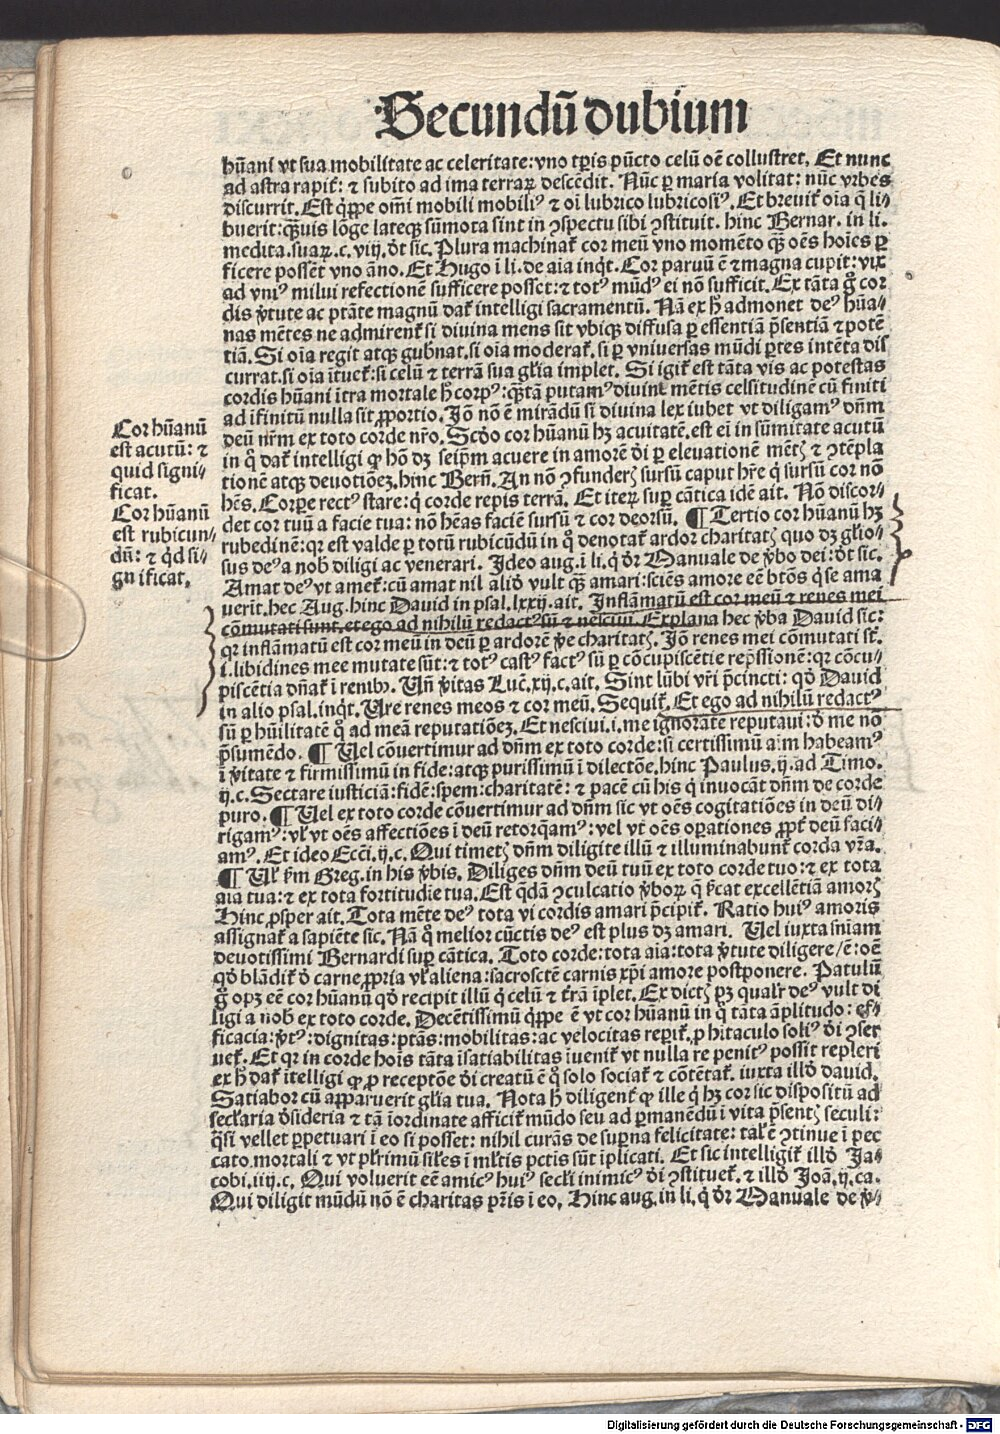 Secundū dubium
hūani vt sua mobilitate ac celeritate: vno tꝑis pūcto celū oē collustret. Et nunc
ad astra rapiť: ⁊ subito ad ima terraꝝ descēdit. Nūc ꝑ maria volitat: nūc vrbes
discurrit. Est q̄ppe omī mobili mobiliꝰ ⁊ oī lubrico lubricosiꝰ. Et breuiť oīa q̄ li⸗
buerit: q̄uis lōge lateqꝫ sūmota sint in ɔspectu sibi ɔstituit. hinc Bernar. in li.
medita. suaꝝ. c. viij. d̄t sic. Plura machinať cor meū vno momēto q̄ꝫ oēs hoīes ꝑ
ficere possēt vno āno. Et Hugo ī li. de aīa inq̄t. Cor paruū ē ⁊ magna cupit: vix
ad vniꝰ milui refectionē sufficere posset: ⁊ totꝰ mūdꝰ ei nō sufficit. Ex tāta g̊ cor
dis v̄tute ac ptāte magnū dať intelligi sacramentū. Nā ex h̄ admonet deꝰ hūa⸗
nas mētes ne admirenť si diuina mens sit vbiqꝫ diffusa ꝑ essentiā p̄sentiā ⁊ potē
tiā. Si oīa regit atqꝫ gub̄nat. si oīa moderať. si ꝑ vniuersas mūdi ꝑtes intēta dis
currat. si oīa ītueť: si celū ⁊ terrā sua gl̄ia implet. Si igiť est tāta vis ac potestas
cordis hūani ītra mortale h̄ corpꝰ: q̄ꝫtā putamꝰ diuine mētis celsitudinē cū finiti
ad īfinitū nulla sit ꝓportio. Iō nō ē mirādū si diuina lex iubet vt diligamꝰ dn̄m
deū nr̄m ex toto corde nr̄o. Scd̄o cor hūanū hꝫ acuitatē. est eī in sūmitate acutū
in q̊ dať intelligi ꝙ hō dꝫ seip̄m acuere in amorē d̄i ꝑ eleuationē mētꝭ ⁊ ɔtēpla
tionē atqꝫ deuotiōeꝫ. hinc Bern̄. An nō ɔfunderꝭ sursū caput hr̄e q̄ sursū cor nō
hēs. Corꝑe rectꝰ stare: q̄ corde repis terrā. Et iteꝝ suꝑ cātica idē ait. Nō discor⸗
det cor tuū a facie tua: nō hēas faciē sursū ⁊ cor deorsū. ¶ Tertio cor hūanū hꝫ
rubedinē: qr est valde ꝑ totū rubicūdū in q̊ denotať ardor charitatꝭ quo dꝫ gl̄io⸗
sus deꝰ a nob̄ diligi ac venerari. Ideo aug. ī li. q̄ d̄r Manuale de v̄bo dei: d̄t sic.
Amat deꝰ vt ameť: cū amat nil aliđ vult q̄ꝫ amari: sciēs amore eē btōs q̄ se ama
uerīt. hec Aug. hinc Dauid in psal. lxxij. ait. Inflāmatū est cor meū ⁊ renes mei
cōmutati sunt. et ego ad nihilū redactꝰ sū ⁊ nesciui. Explana hec v̄ba Dauid sic:
qr inflāmatū est cor meū in deū ꝑ ardorē v̄e charitatꝭ. Iō renes mei cōmutati st̄.
i. libidines mee mutate sūt: ⁊ totꝰ castꝰ factꝰ sū ꝑ cōcupiscētie rep̄ssionē: qr cōcu⸗
piscētia dn̄ať ī renibꝫ. Un̄ v̄itas Luc̄. xij. c. ait. Sint lūbi vr̄i p̄cincti: qđ Dauid
in alio psal. inq̄t. Ure renes meos ⁊ cor meū. Sequiť. Et ego ad nihilū redactꝰ
sū ꝑ hūilitatē q̊ ad meā reputatiōeꝫ. Et nesciui. i. me ignorātē reputaui: đ me nō
p̄sumēdo. ¶ Uel cōuertimur ad dn̄m ex toto corde: si certissimū aīm habeamꝰ
ī v̄itate ⁊ firmissimū in fide: atqꝫ purissimū ī dilectōe. hinc Paulus. ij. ad Timo.
ij. c. Sectare iusticiā: fidē: spem: charitatē: ⁊ pacē cū his q̄ inuocāt dn̄m de corde
puro. ¶ Uel ex toto corde cōuertimur ad dn̄m sic vt oēs cogitatiōes in deū di⸗
rigamꝰ: vl̄ vt oēs affectiōes ī deū retorq̄amꝰ: vel vt oēs oꝑationes ꝓpť deū faci⸗
amꝰ. Et ideo Ecc̄i. ij. c. Qui timetꝭ dn̄m diligite illū ⁊ illuminabunť corda vr̄a.
¶ Ul̄ ẜm Greg. in his v̄bis. Diliges dn̄m deū tuū ex toto corde tuo: ⁊ ex tota
aīa tua: ⁊ ex tota fortitudīe tua. Est q̄dā ɔculcatio v̄boꝝ q̄ ẜcat excellētiā amorꝭ
Hinc ꝓsper ait. Tota mēte deꝰ tota vi cordis amari p̄cipiť. Ratio huiꝰ amoris
assignať a sapiēte sic. Nā q̊ melior cūctis deꝰ est plus dꝫ amari. Uel iuxta sn̄iam
deuotissimi Bernardi suꝑ cātica. Toto corde: tota aīa: tota v̄tute diligere / ē: oē
qđ blādiť đ carne ꝓpria vl̄ aliena: sacrosctē carnis xp̄i amore postponere. Patulū
g̊ opꝫ eē cor hūanū qđ recipit illū q̄ celū ⁊ t̄rā īplet. Ex dictꝭ pꝫ qualr̄ deꝰ vult di
ligi a nob̄ ex toto corde. Decētissimū q̄ppe ē vt cor hūanū in q̊ tāta āplitudo: ef⸗
ficacia: v̄tꝰ: dignitas: ptās: mobilitas: ac velocitas reperiť. ꝓ hītaculo soliꝰ d̄i ɔser
ueť. Et qr in corde hoīs tāta īsatiabilitas īueniť vt nulla re penitꝰ possit repleri
ex h̄ dať ītelligi ꝙ ꝓ receptōe d̄i creatū ē q̊ solo sociať ⁊ cōtētať. iuxta illđ dauid.
Satiabor cū apparuerit gl̄ia tua. Nota h̄ diligenť ꝙ ille q̄ hꝫ cor sic dispositū ad
secl̄aria đsideria ⁊ tā īordinate afficiť mūdo seu ad ꝑmanēdū ī vita p̄sentꝭ seculi:
q̄si vellet ꝑpetuari ī eo si posset: nihil curās de suꝑna felicitate: tal̄ ē ɔtinue ī pec
cato mortali ⁊ vt pl̄rimū sil̄es ī ml̄tis pctīs sūt īplicati. Et sic intelligiť illđ Ja⸗
cobi. iiij. c. Qui voluerit eē amicꝰ huiꝰ secl̄i inimicꝰ d̄i ɔstitueť. ⁊ illđ Joā. ij. ca.
Qui diligit mūdū nō ē charitas pr̄is ī eo. Hinc aug. in li. q̄ d̄r Manuale de v̄⸗
Cor hūanū
est acutū: ⁊
quid signi⸗
ficat.
Cor hūanū
est rubicun⸗
dū: ⁊ qđ si⸗
gnificat.
Digitalisierung gefördert durch die Deutsche Forschungsgemeinschaft - DFG